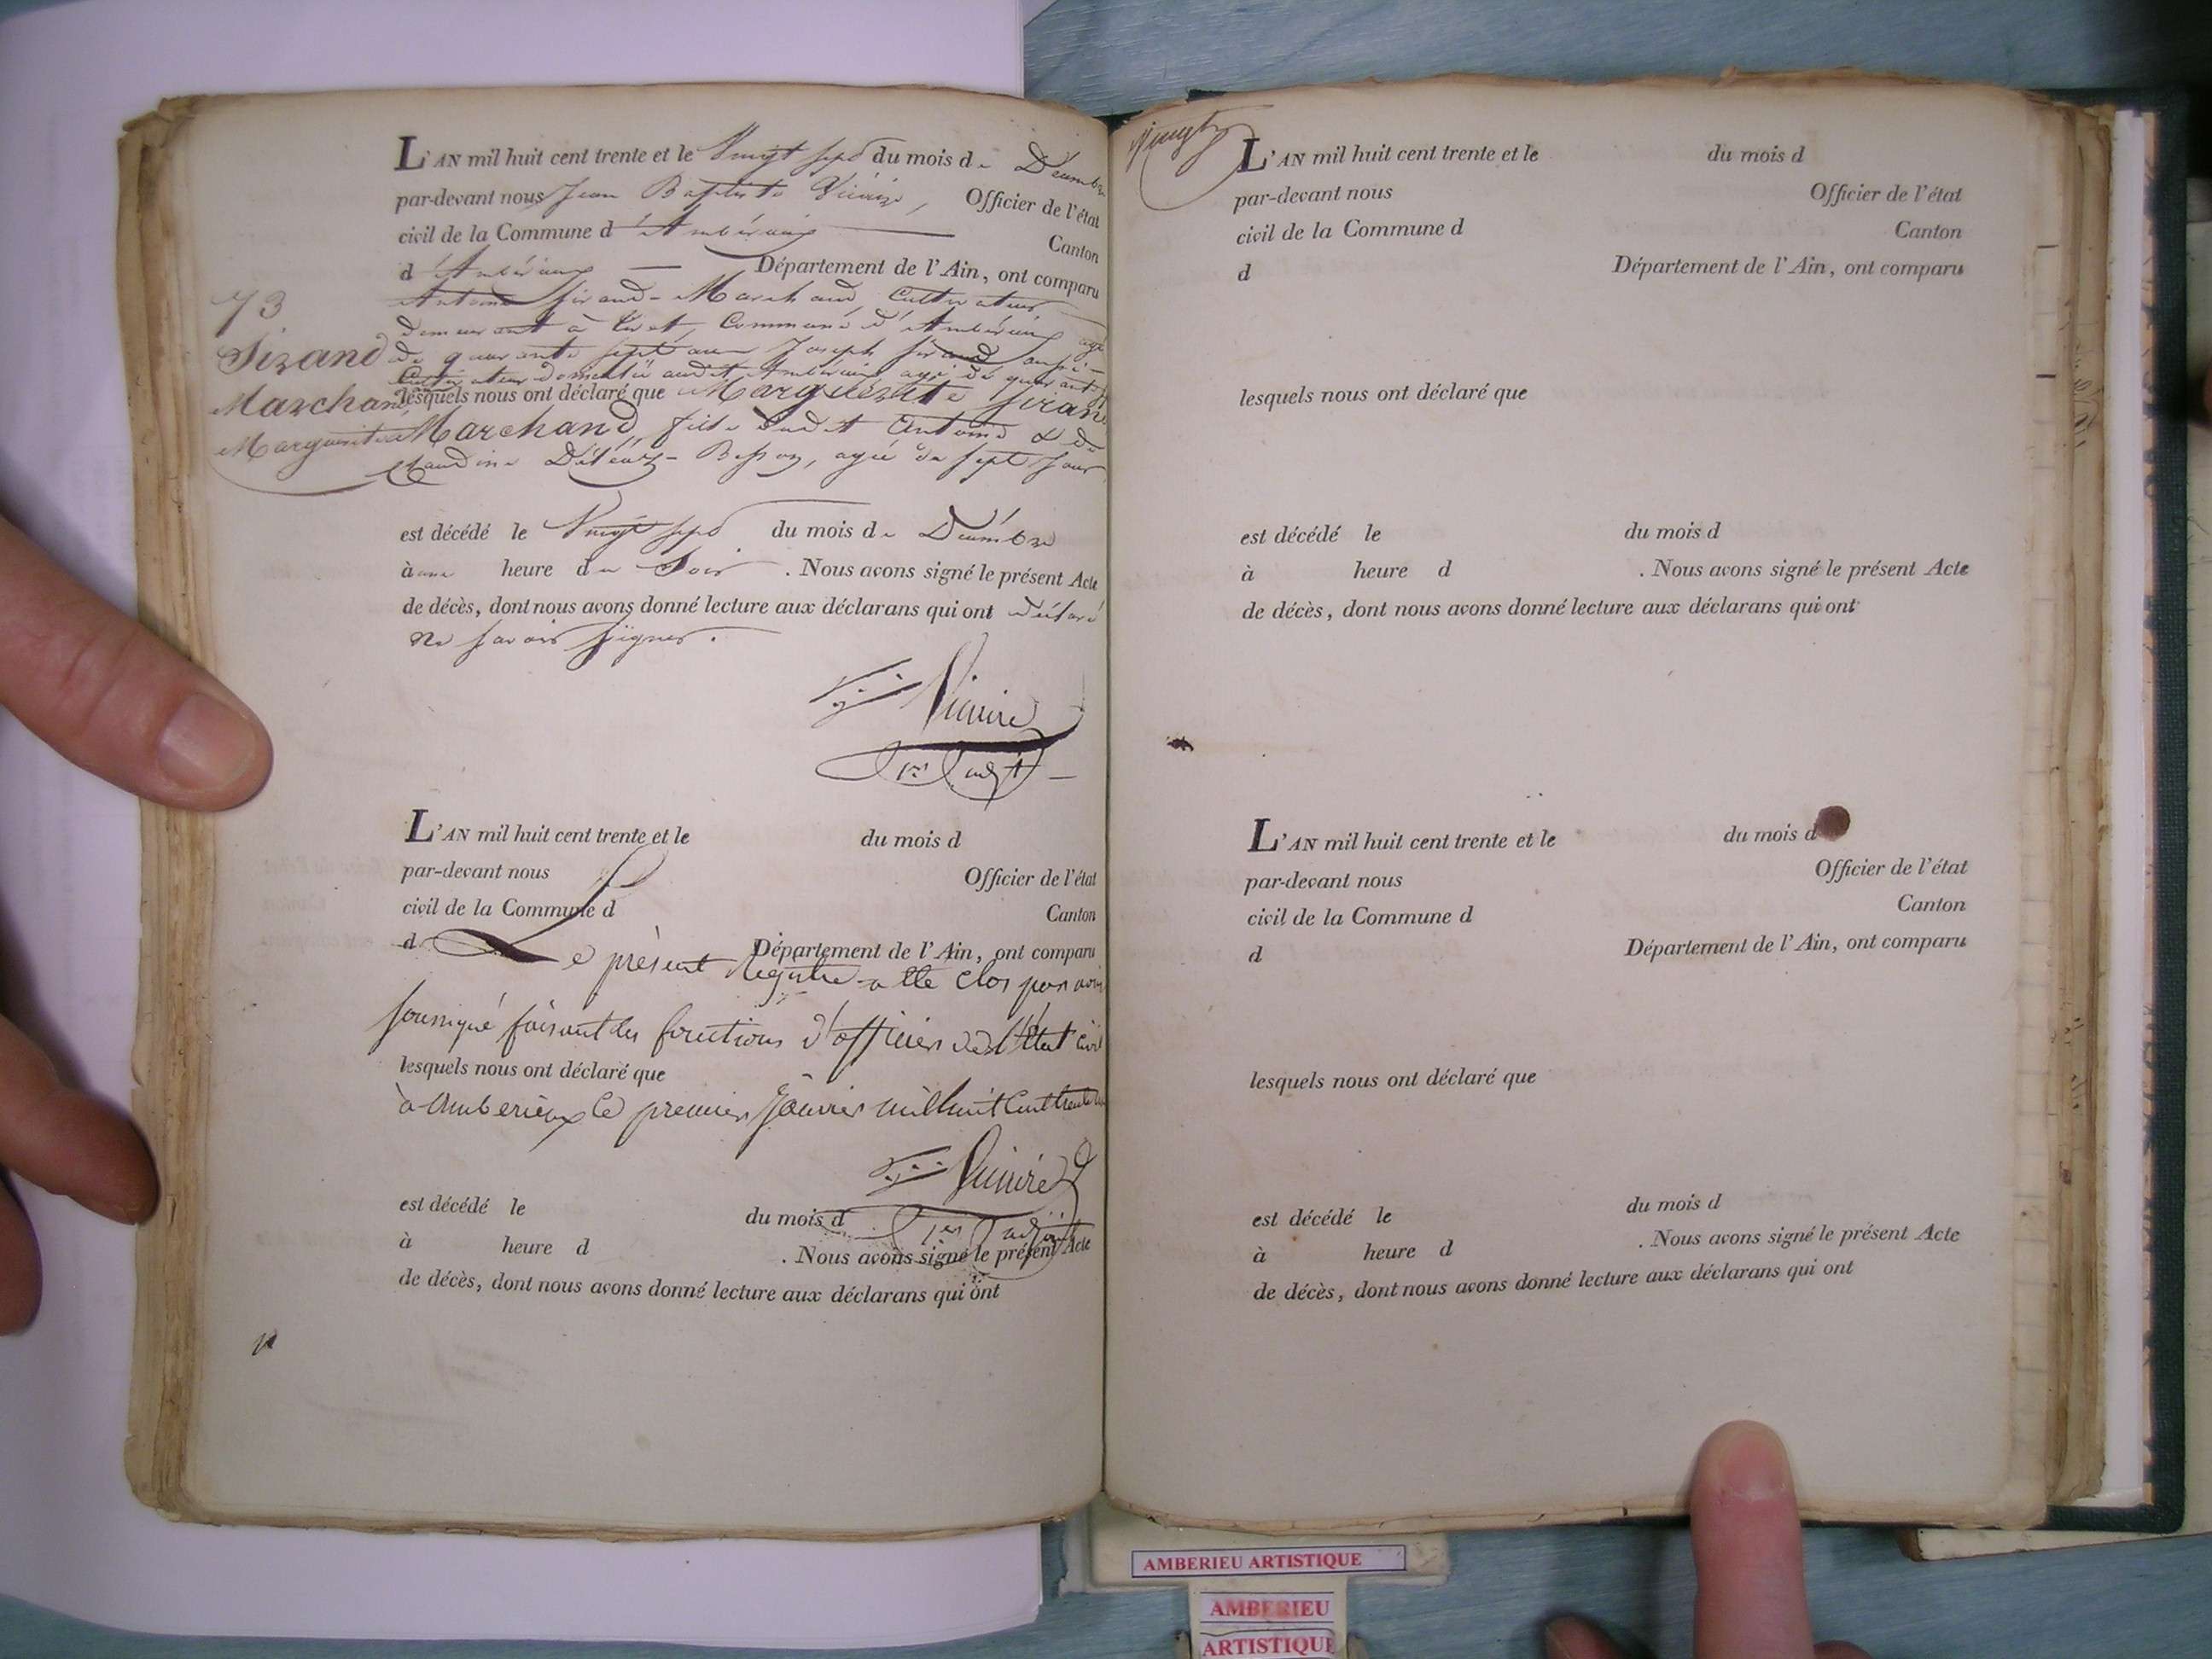 L'AN mil huit cent trente et le Vingt sept du mois de Décembre
par-devant nous Jean Baptiste Vicaire, Officier de l'état
civil de la Commune d'Ambérieux Canton
d'Ambérieux Département de l'Ain, ont comparu
73
Antoine Sirand-Marchand, Cultivateur
demeurant à Commune d'Ambérieux agé
Sirand
de quarante sept ans Joseph Sirand aussi
Cultivateur domicilié audit Ambérieux agé de quarante
Marchand
lesquels nous ont déclaré que Marguerite Sirand
Marguerite
Marchand, fille dudit Antoine & de
Claudine Besson, agée de sept jours
est décédé le Vingt sept du mois de Décembre
à une heure du Soir . Nous avons signé le présent Acte
de décès, dont nous avons donné lecture aux déclarans qui ont déclaré
ne savoir signer.
Vicaire
1er adjt
L'AN mil huit cent trente et le du mois d
par-devant nous Officier de l'état
civil de la Commune d Canton
d Département de l'Ain, ont comparu
Le présent Registre a été clos par nous
soussigné faisant les fonctions d'officier de l'état civil
lesquels nous ont déclaré que
à Amberieux le premier Janvier mil huit cent trente
Vicaire
est décédé le du mois d
1er adjoint
à heure d . Nous avons signé le présent Acte
de décès, dont nous avons donné lecture aux déclarans qui ont
L'AN mil huit cent trente et le du mois d
par-devant nous Officier de l'état
civil de la Commune d Canton
d Département de l'Ain, ont comparu
lesquels nous ont déclaré que
est décédé le du mois d
à heure d . Nous avons signé le présent Acte
de décès, dont nous avons donné lecture aux déclarans qui ont
L'AN mil huit cent trente et le du mois d
par-devant nous Officier de l'état
civil de la Commune d Canton
d Département de l'Ain, ont comparu
lesquels nous ont déclaré que
est décédé le du mois d
à heure d . Nous avons signé le présent Acte
de décès, dont nous avons donné lecture aux déclarans qui ont
AMBERIEU ARTISTIQUE
AMBERIEU
ARTISTIQUE